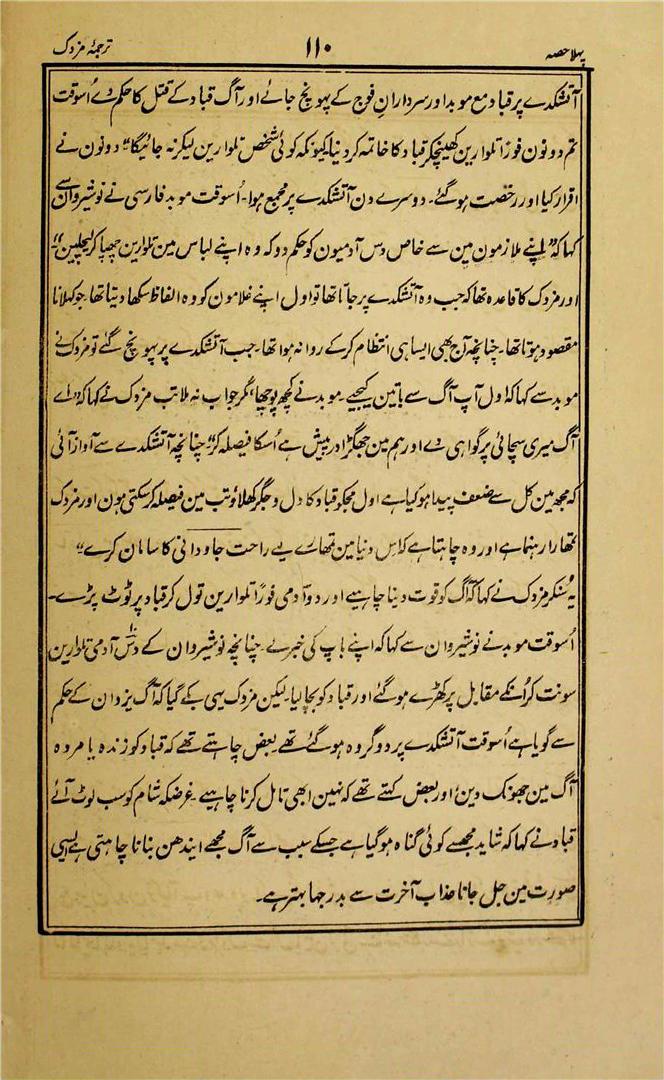 پہلا حصہ ۱۱۰ ترجمۂ مزدک
آتشکدے پر قباد مع موبد اور سرداران فوج کے پہونچ جائے اور آگ قباد کے قتل کا حکم دے اُسوقت
تم دونون فوراً تلوارین کھینچکر قباد کا خاتمہ کر دینا کیونکہ کوئی شخص تلوارین لیکر نہ جائیگا" دونون نے
اقرار کیا اور رخصت ہو گئے۔ دوسرے دن آتشکدے پر مجمع ہوا۔ اُسوقت موبد فارسی نے نوشیروان سے
کہا کہ "اپنے ملازمون مین سے خاص دس آدمیون کو حکم دو کہ وہ اپنے لباس مین تلوارین چھپا کر لیچلین"
اور مزدک کا قاعدہ تھا کہ جب وہ آتشکدے پر جاتا تھا تو اول اپنے غلامون کو وہ الفاظ سکھا دیتا تھا۔ جو کہلانا
مقصود ہوتا تھا۔ چنانچہ آج بھی ایسا ہی انتظام کر کے روانہ ہوا تھا۔ جب آتشکدے پر پہونچ گئے تو مزدک نے
موبد سے کہا کہ اول آپ آگ سے باتین کیجیے۔ موبد نے کچھ پوچھا، مگر جواب نہ ملا تب مزدک نے کہا کہ "اے
آگ میری سچائی پر گواہی دے اور ہم مین جو جھگڑا درپیش ہے اُسکا فیصلہ کر" چنانچہ آتشکدے سے آواز آئی
کہ مجھ مین کل سے ضعف پیدا ہو گیا ہے اول مجکو قباد کا دل و جگر کھلاؤ تب مین فیصلہ کر سکتی ہون اور مزدک
تمھارا رہنما ہے اور وہ چاہتا ہے کہ اس دنیا مین تمھارے لیے راحت جاودانی کا سامان کرے"
یہ سنکر مزدک نے کہا کہ آگ کو قوت دینا چاہیے اور دو آدمی فوراً تلوارین تول کر قباد پر ٹوٹ پڑے۔
اُسوقت موبد نے نوشیروان سے کہا کہ اپنے باپ کی خبر لے۔ چنانچہ نوشیروان کے دس آدمی تلوارین
سونت کر اُنکے مقابل پر کھڑے ہو گئے اور قباد کو بچا لیا۔ لیکن مزدک یہی بکے گیا کہ آگ یزدان کے حکم
سے گویا ہے اُسوقت آتشکدے پر دو گروہ ہو گئے تھے۔ بعض چاہتے تھے کہ قباد کو زندہ یا مردہ
آگ مین جھونک دین اور بعض کہتے تھے کہ نہین ابھی تامل کرنا چاہیے۔ غرضکہ شام کو سب لوٹ آئے
قباد نے کہا کہ شاید مجھسے کوئی گناہ ہو گیا ہے جسکے سبب سے آگ مجھے ایندھن بنانا چاہتی ہے ایسی
صورت مین جل جانا عذاب آخرت سے بدرجہا بہتر ہے۔